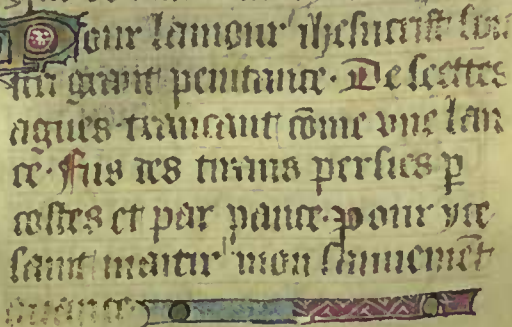 Pour lamour ihesucrist sou
fri grant penitance. De seettes
agues trancant cõme vne lan
ce. Fus des tirans persies p
costes et par pance. pour yce
saint martir mon sauuemẽt